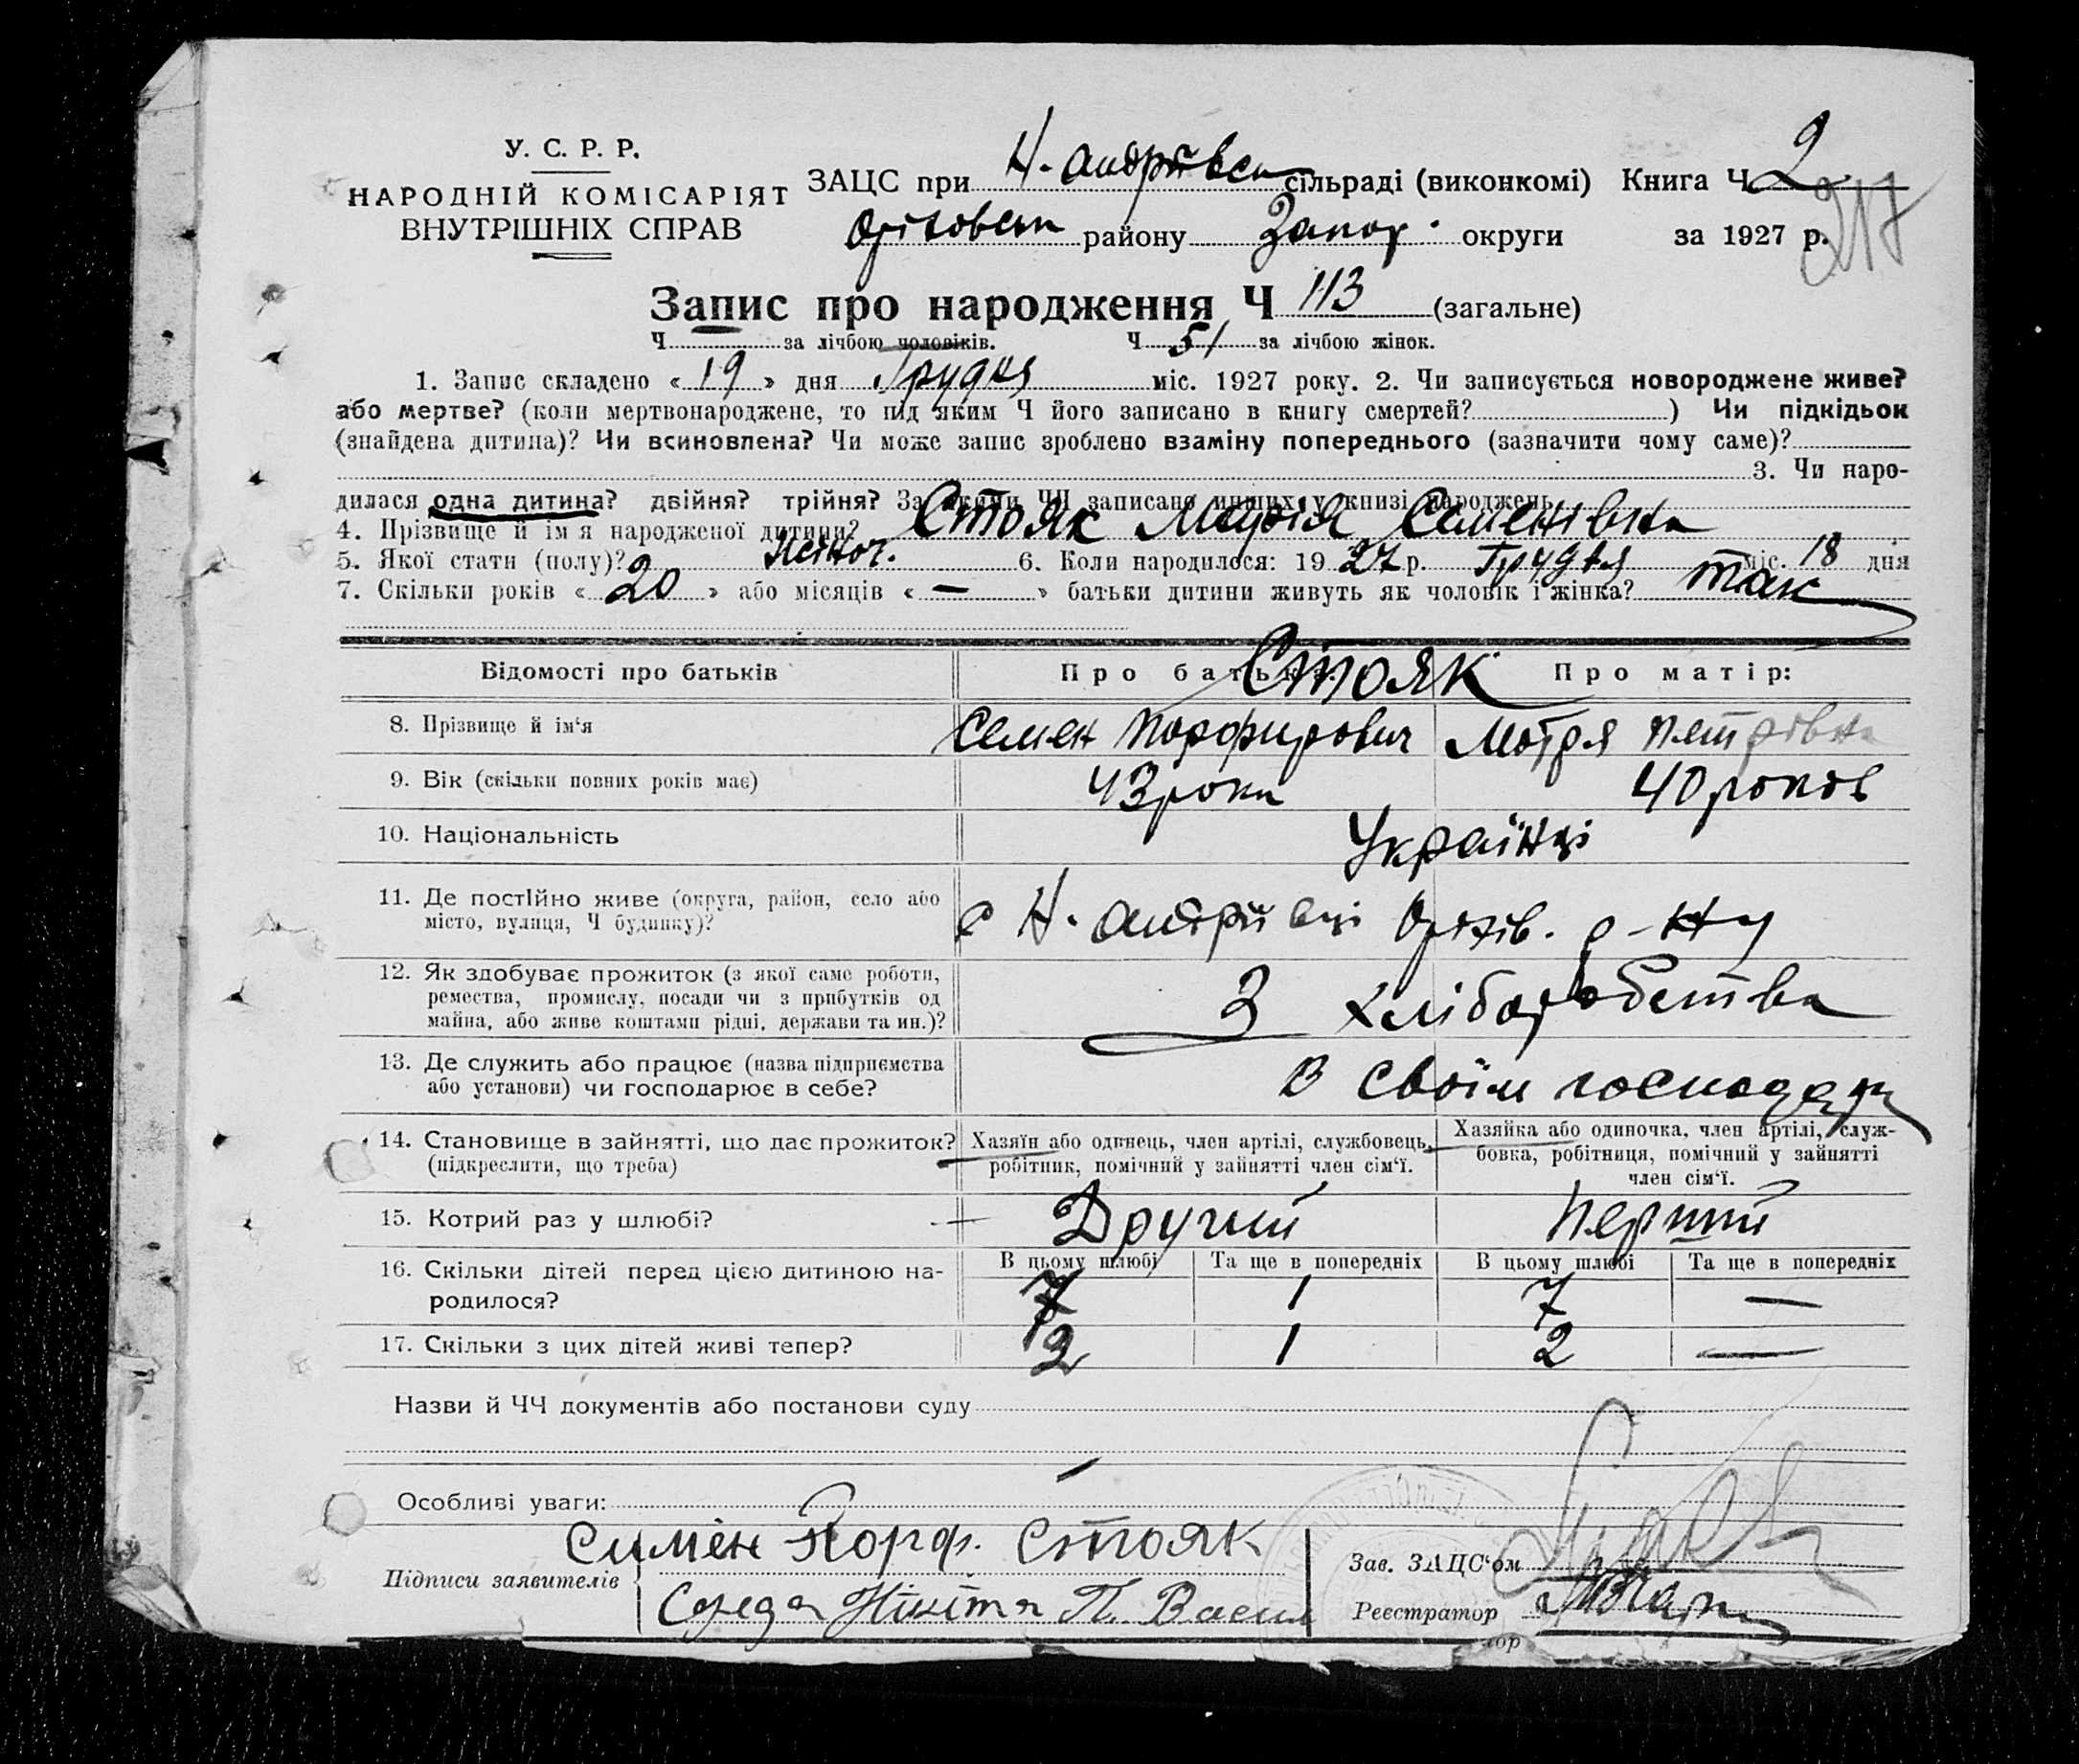 У. С. Р. Р.
НАРОДНІЙ КОМІСАРІЯТ
ВНУТРІШНІХ СПРАВ
ЗАЦС при Н-Андріївск сільраді (виконкомі) Книга Ч 2
217
Оріховськ району Запор. округи за 1927 р.
Запис про народження Ч 113 (загальне)
Ч за лічбою чоловіків. Ч 51 за лічбою жінок.
1. Запис складено « 19 » дня Грудня міс. 1927 року. 2. Чи записується новороджене живе?
або мертве? (коли мертвонароджене, то під яким Ч його записано в книгу смертей? ) Чи підкідьок
(знайдена дитина)? Чи всиновлена? Чи може запис зроблено взаміну попереднього (зазначити чому саме)?
3. Чи наро-
дилася одна дитина? двійня? трійня? За якими ЧЧ записано инших у книзі народжень
4. Прізвище й ім'я народженої дитини? Стояк Марія Семенівна
5. Якої стати (полу)? Жіноч. 6. Коли народилося: 1927 р. Грудня міс. 18 дня
7. Скільки років « 20 » або місяців « — » батьки дитини живуть як чоловік і жінка? так
Відомості про батьків Про батька: Стояк Про матір:
8. Прізвище й ім'я Семен Порфирович Мотря Петрівна
9. Вік (скільки повних років має) 43 роки 40 років
10. Національність Українці
11. Де постійно живе (округа, район, село або
місто, вулиця, Ч будинку)? с Н-Андріївці Оріхів. р-ну
12. Як здобуває прожиток (з якої саме роботи,
ремества, промислу, посади чи з прибутків од
майна, або живе коштами рідні, держави та ин.)? З хліборобства
13. Де служить або працює (назва підприємства
або установи) чи господарює в себе? В своїм господар
14. Становище в зайнятті, що дає прожиток?
(підкреслити, що треба)
Хазяїн або одинець, член артілі, службовець,
робітник, помічний у зайнятті член сім'ї.
Хазяйка або одиночка, член артілі, служ-
бовка, робітниця, помічний у зайнятті
член сім'ї.
15. Котрий раз у шлюбі? Другий Перший
16. Скільки дітей перед цією дитиною на-
родилося?
В цьому шлюбі Та ще в попередніх В цьому шлюбі Та ще в попередніх
7 1 7 —
17. Скільки з цих дітей живі тепер? 2 1 2 —
Назви й ЧЧ документів або постанови суду
Особливі уваги:
Підписи заявителів
Симен Порф. Стояк
Середа Нікіта П. Васил
Зав. ЗАЦС'ом
Реєстратор